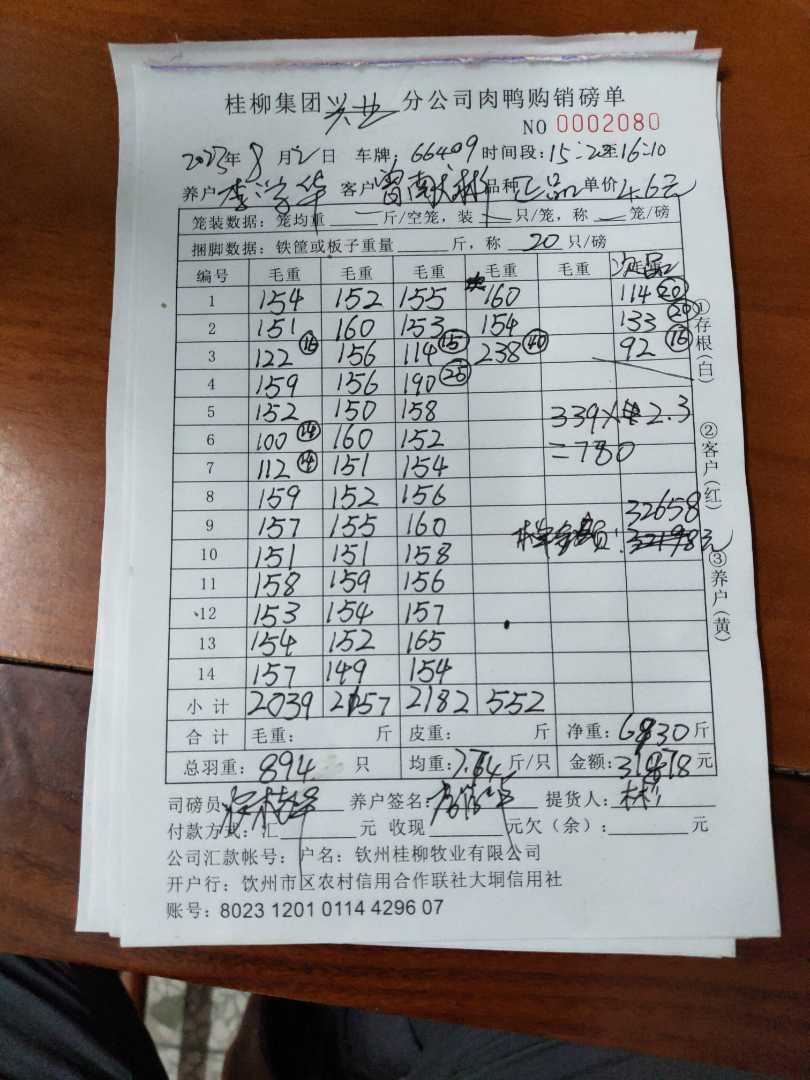 桂柳集团兴业分公司肉鸭购销磅单
NO 0002080
2023年8月2日 车牌:66409 时间段:15:2 至16:10
养户 李 华 客户 曾献彬 品种 正品 单价4.6元
笼装数据:笼均重 — 斤/空笼,装 — 只/笼,称 — 笼/磅
捆脚数据:铁筐或板子重量 斤,称 20 只/磅
编号 毛重 毛重 毛重 毛重 毛重 次品
1 154 152 155 160 114 ⑳
2 151 160 153 154 133 ⑳
3 122 ⑯ 156 114 ⑮ 238 ㊵ 92 ⑯
4 159 156 190 ㉕
5 152 150 158 339× 2.3
6 100 ⑭ 160 152 =780
7 112 ⑭ 151 154
8 159 152 156 32658
9 157 155 160 总金额: 元
10 151 151 158
11 158 159 156
12 153 154 157
13 154 152 165
14 157 149 154
小计 2039 2157 2182 552
合计 毛重: 斤 皮重: 斤 净重:6930斤
总羽重:894 只 均重:7.64斤/只 金额:31878元
司磅员 养户签名: 提货人:
付款方式:汇 元 收现 元欠(余): 元
公司汇款帐号:户名:钦州桂柳牧业有限公司
开户行:钦州市区农村信用合作联社大垌信用社
账号:8023 1201 0114 4296 07
①存根(白)
②客户(红)
③养户(黄)